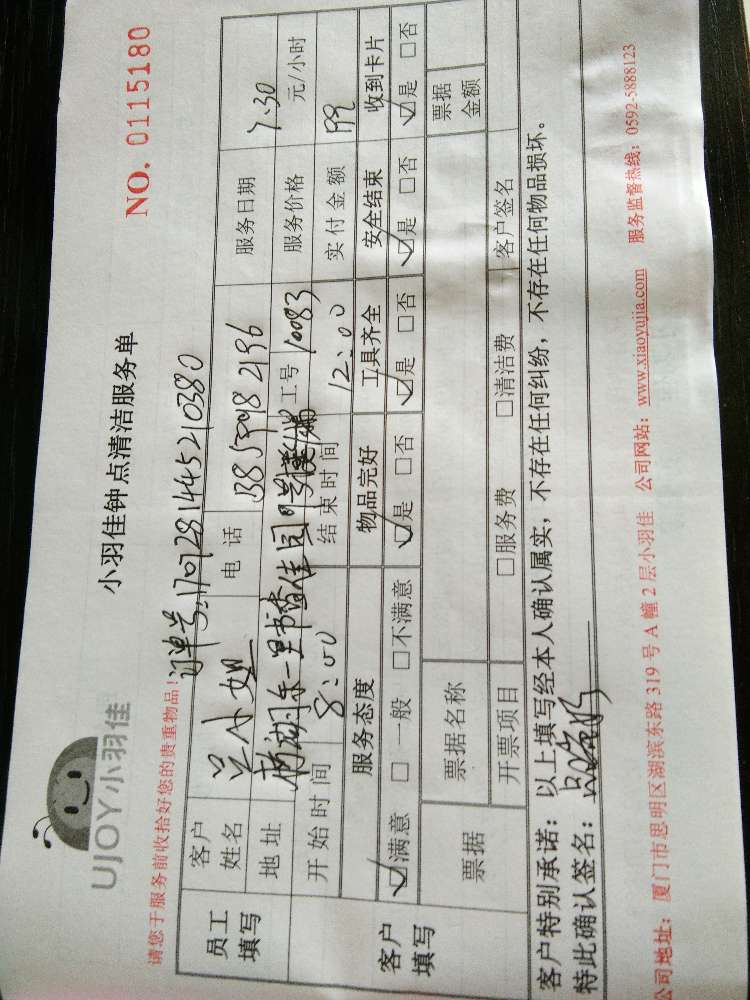 UJOY小羽佳
小羽佳钟点清洁服务单
NO. 0115180
请您于服务前收拾好您的贵重物品!
订单号:1707281445210380
员工填写
客户姓名 吴小姐 电话 服务日期 7.30
地址 工号 10083 服务价格 元/小时
开始时间 8:00 结束时间 12:00 实付金额
客户填写
服务态度 物品完好 工具齐全 安全结束 收到卡片
☑满意 □一般 □不满意 ☑是 □否 ☑是 □否 ☑是 □否 ☑是 □否
票据 票据名称 票据金额
开票项目 □服务费 □清洁费 客户签名
客户特别承诺:以上填写经本人确认属实,不存在任何纠纷,不存在任何物品损坏。
特此确认签名:
公司地址:厦门市思明区湖滨东路319号A幢2层小羽佳 公司网站:www.xiaoyujia.com 服务监督热线:0592-5888123